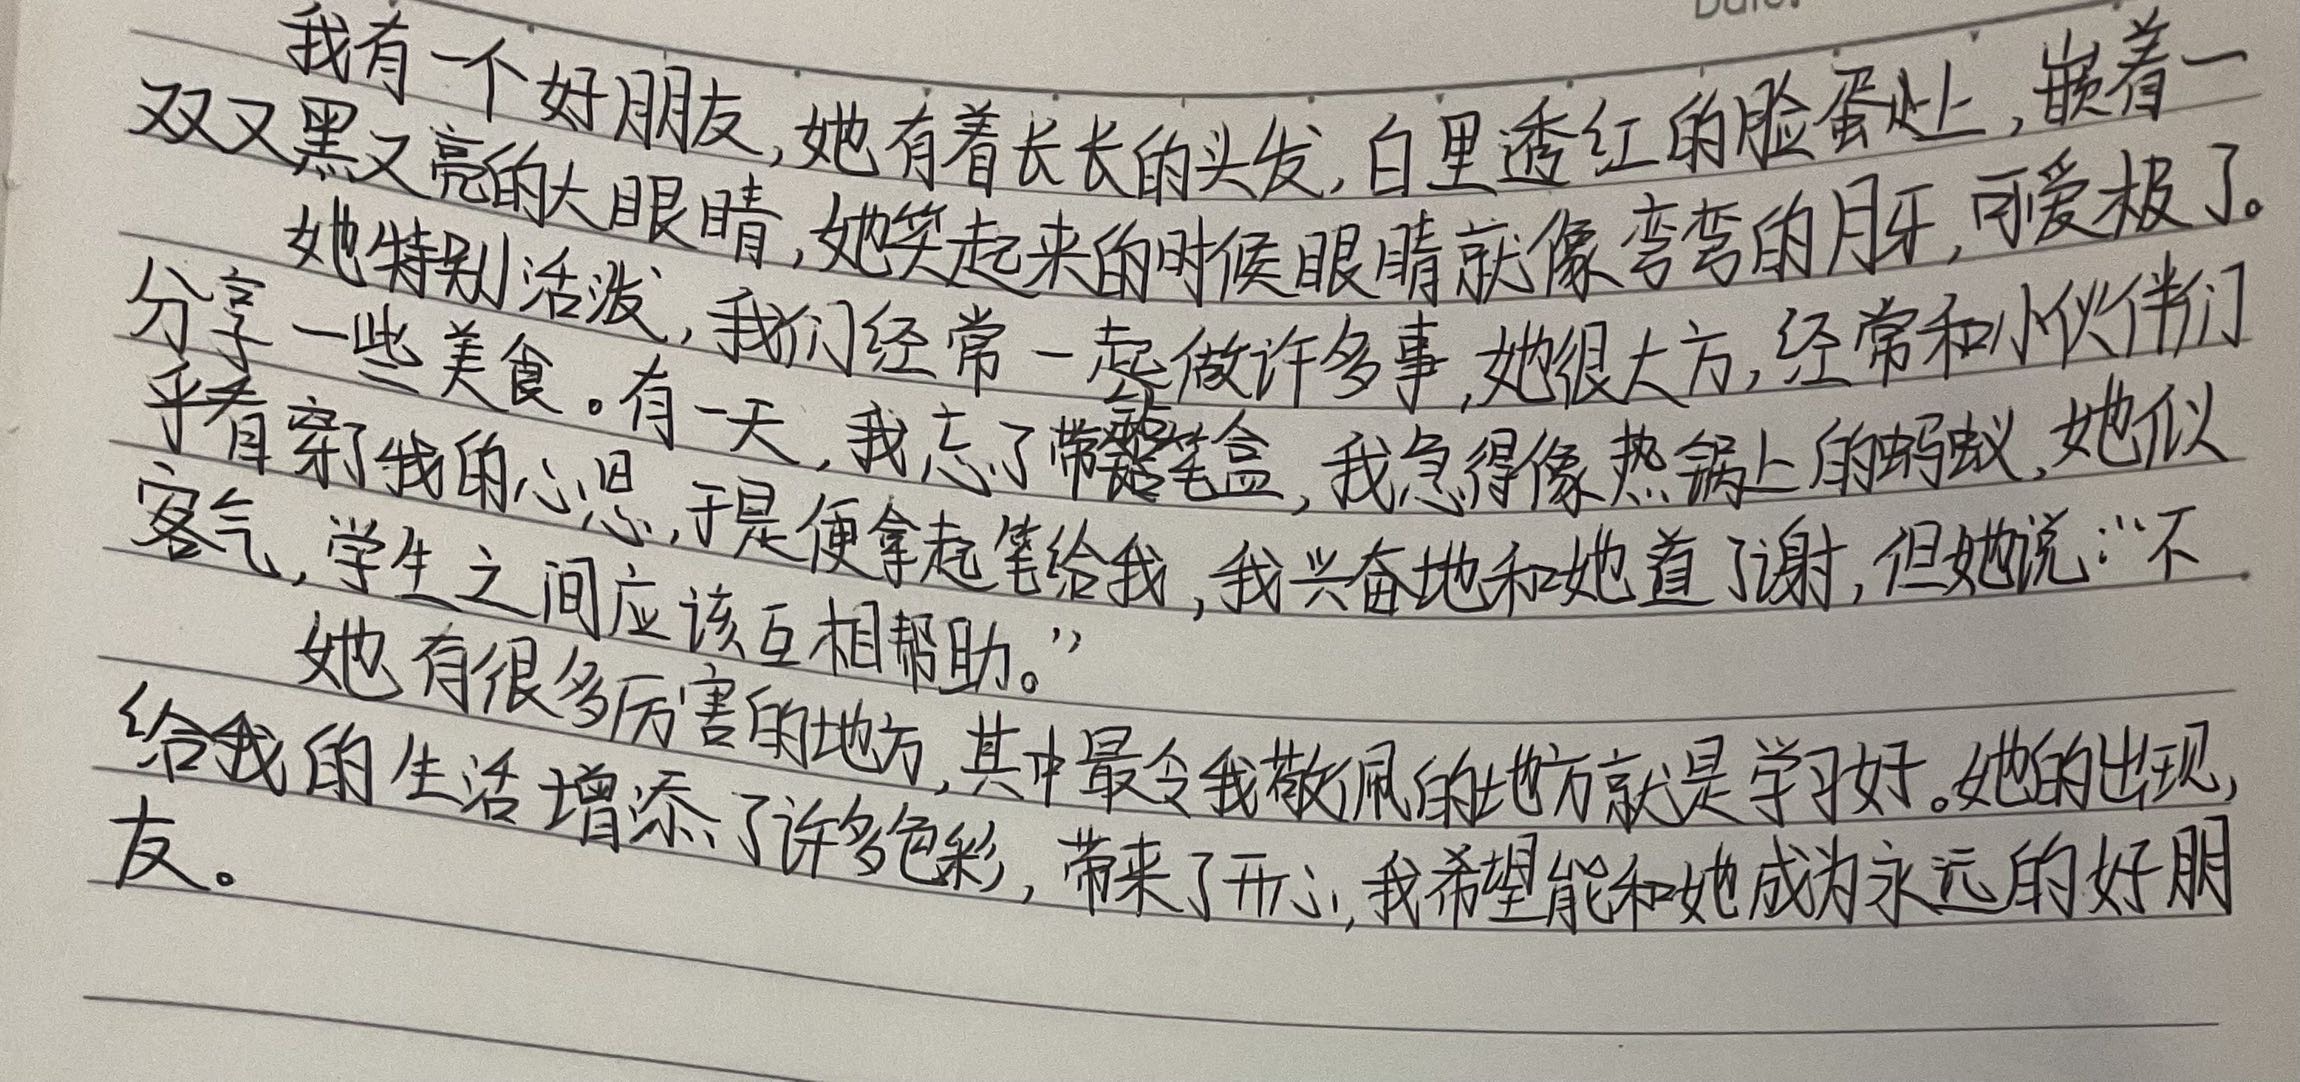 Date.
我有一个好朋友,她有着长长的头发,白里透红的脸蛋上,嵌着一
双又黑又亮的大眼睛,她笑起来的时候眼睛就像弯弯的月牙,可爱极了。
她特别活泼,我们经常一起做许多事,她很大方,经常和小伙伴们
分享一些美食。有一天,我忘了带笔盒,我急得像热锅上的蚂蚁,她似
乎看穿了我的心思,于是便拿起笔给我,我兴奋地和她道了谢,但她说:“不
客气,学生之间应该互相帮助。”
她有很多厉害的地方,其中最令我敬佩的地方就是学习好。她的出现,
给我的生活增添了许多色彩,带来了开心,我希望能和她成为永远的好朋
友。